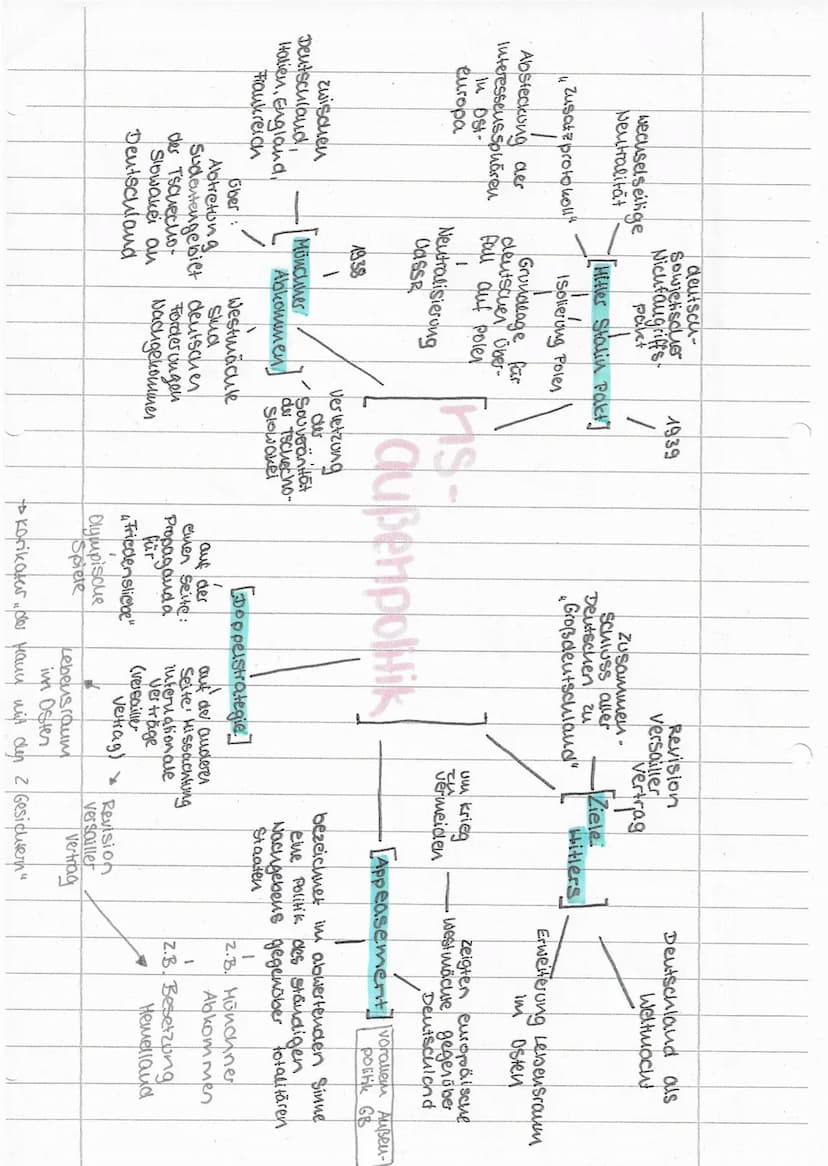 NS-
außenpolitik
[Hitler Stalin Pakt]
deutsch-
sowjetischer
Nichtangriffs-
pakt
1939
wechselseitige
Neutralität
"Zusatzprotokoll"
Absteckung der
Interessenssphären
in Ost-
europa
Isolierung Polen
Grundlage für
deutschen Über-
fall auf Polen
Neutralisierung
UdSSR
[Münchner
Abkommen]
1938
zwischen
Deutschland,
Italien, England,
Frankreich
über:
Abtretung
Sudetengebiet
der Tschecho-
slowakei an
Deutschland
Westmächte
sind
deutschen
Forderungen
Nachgekommen
Verletzung
der
Souveränität
der Tschecho-
slowakei
[Ziele
Hitlers]
Revision
Versailler
Vertrag
Zusammen-
schluss aller
Deutschen zu
"Großdeutschland"
Deutschland als
Weltmacht
Erweiterung Lebensraum
im Osten
[Appeasement]
vorallem Außen-
politik GB
um Krieg
zu
vermeiden
zeigten europäische
Westmächte gegenüber
Deutschland
bezeichnet im abwertenden Sinne
eine Politik des ständigen
Nachgebens gegenüber totalitären
Staaten
z.B. Münchner
Abkommen
z.B. Besetzung
[Doppelstrategie]
auf der
einen Seite:
Propaganda
für
"Friedensliebe"
Olympische
Spiele
auf der anderen
Seite: Missachtung
internationale
Verträge
(Versailler
Vetrag)
Revision
Versailler
Vertrag
Lebensraum
im Osten
→ Karikatur "der Mann mit den 2 Gesichtern"